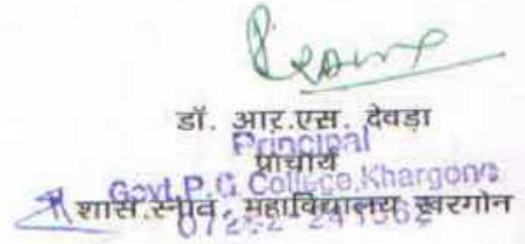 डॉ. आर.एस. देवड़ा
Principal
प्राचार्य
Govt. P. G. College, Khargone
शास. स्नात. महाविद्यालय खरगोन